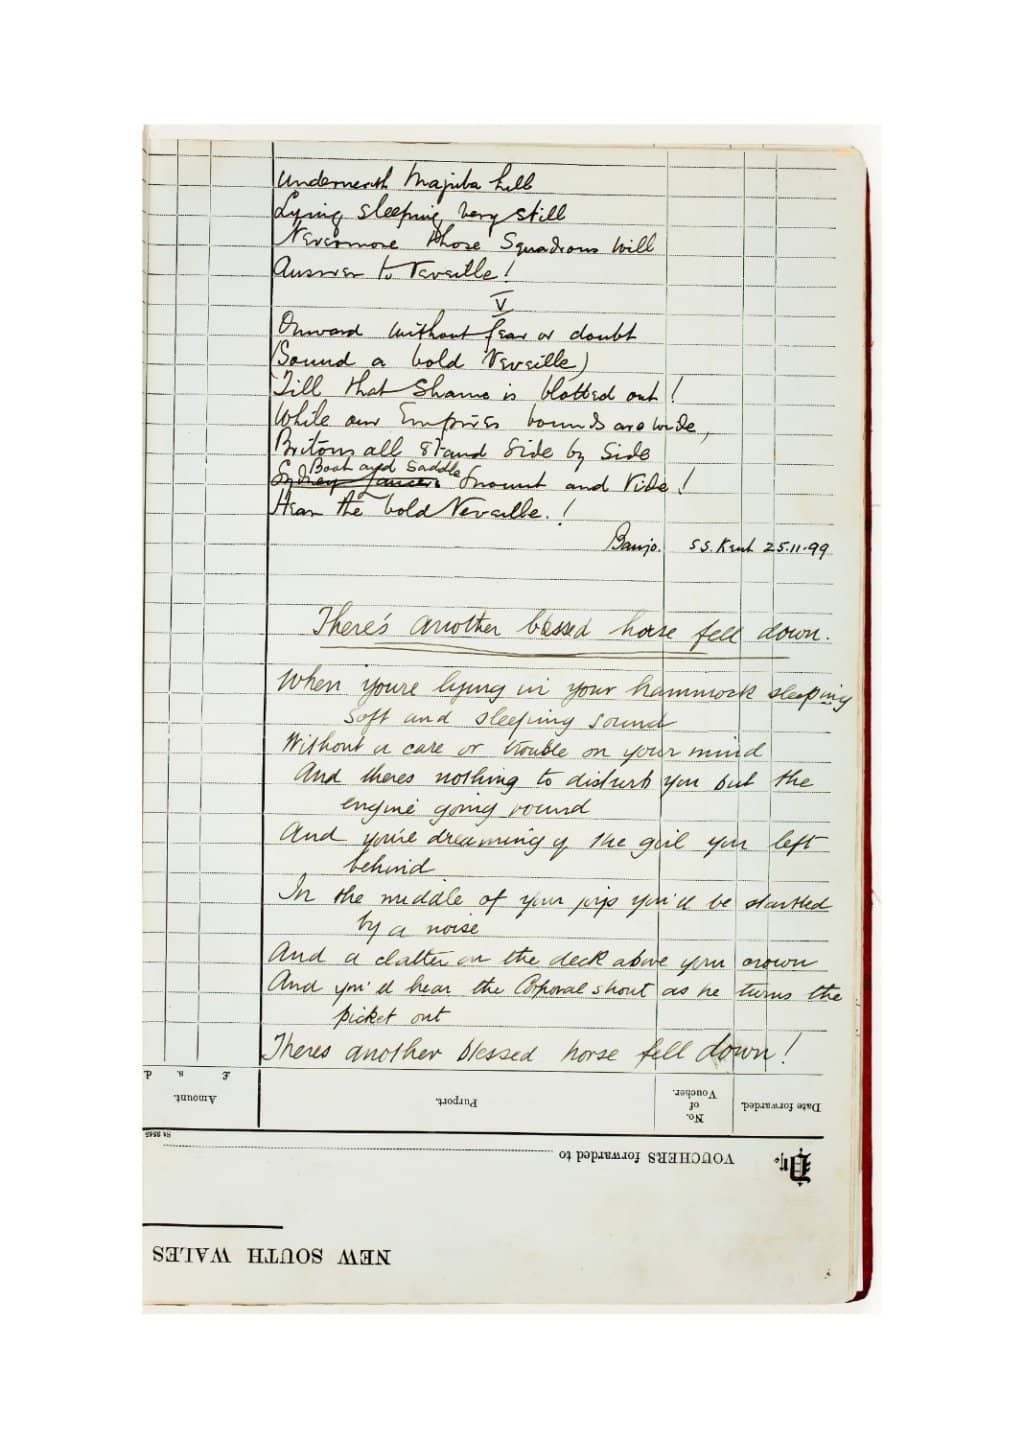 Underneath Majuba hill
Lying sleeping, very still
Nevermore those Squadrons will
Answer to reveille!
V
Onward without fear or doubt
(Sound a bold Reveille)
Till that Shame is blotted out!
While our Empires bounds are wide,
Britons all stand Side by Side
Boot and Saddle
Sydney Lancers mount and ride!
Hear the bold Reveille.!
Banjo. SS. Kent 25.11.99
There's another blessed horse fell down.
When you're lying in your hammock sleeping
soft and sleeping sound
Without a care or trouble on your mind
And theres nothing to disturb you but the
engine going round
And you're dreaming of the girl you left
behind
In the middle of your joys you'd be startled
by a noise
And a clatter on the deck above your crown
And you'd hear the Corporal shout as he turns the
picket out
Theres another blessed horse fell down!
Date forwarded. No. of Voucher. Purport. Amount. £ s. d.
St 2545
Dr. to
VOUCHERS forwarded to
NEW SOUTH WALES